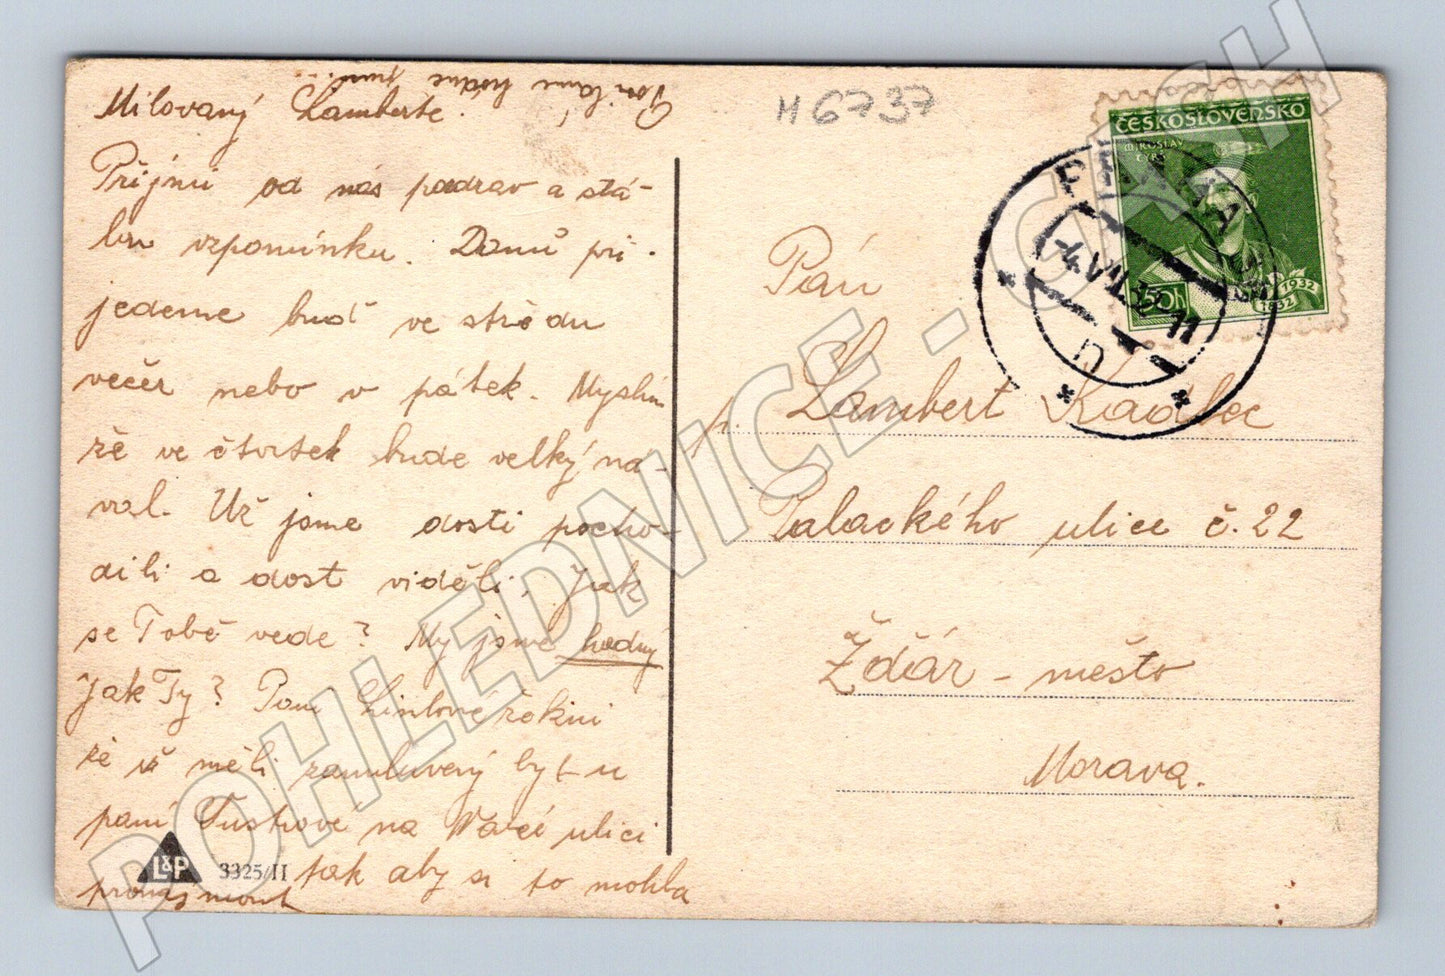 Milovaný Lamberte.
Přijmi od nás pozdrav a stá-
lou vzpomínku. Domů při-
jedeme buď ve středu
večer nebo v pátek. Myslím
že ve čtvrtek bude velký ná-
val. Už jsme dosti pocho-
dili a dost viděli, Jak
se Tobě vede? My jsme hodný
jak Ty? Paní řekni
že už měli zamluvený byt u
paní na ulici
tak aby si to mohla
pronajmout
L&P 3325/II
M 6737
ČESKOSLOVENSKO
MIROSLAV
TYRŠ
50h 1932
PRAHA
4.VII.32-11
Pán
p. Lambert Kadlec
Palackého ulice č. 22
Žďár - město
Morava.
POHLEDNICE - CASH